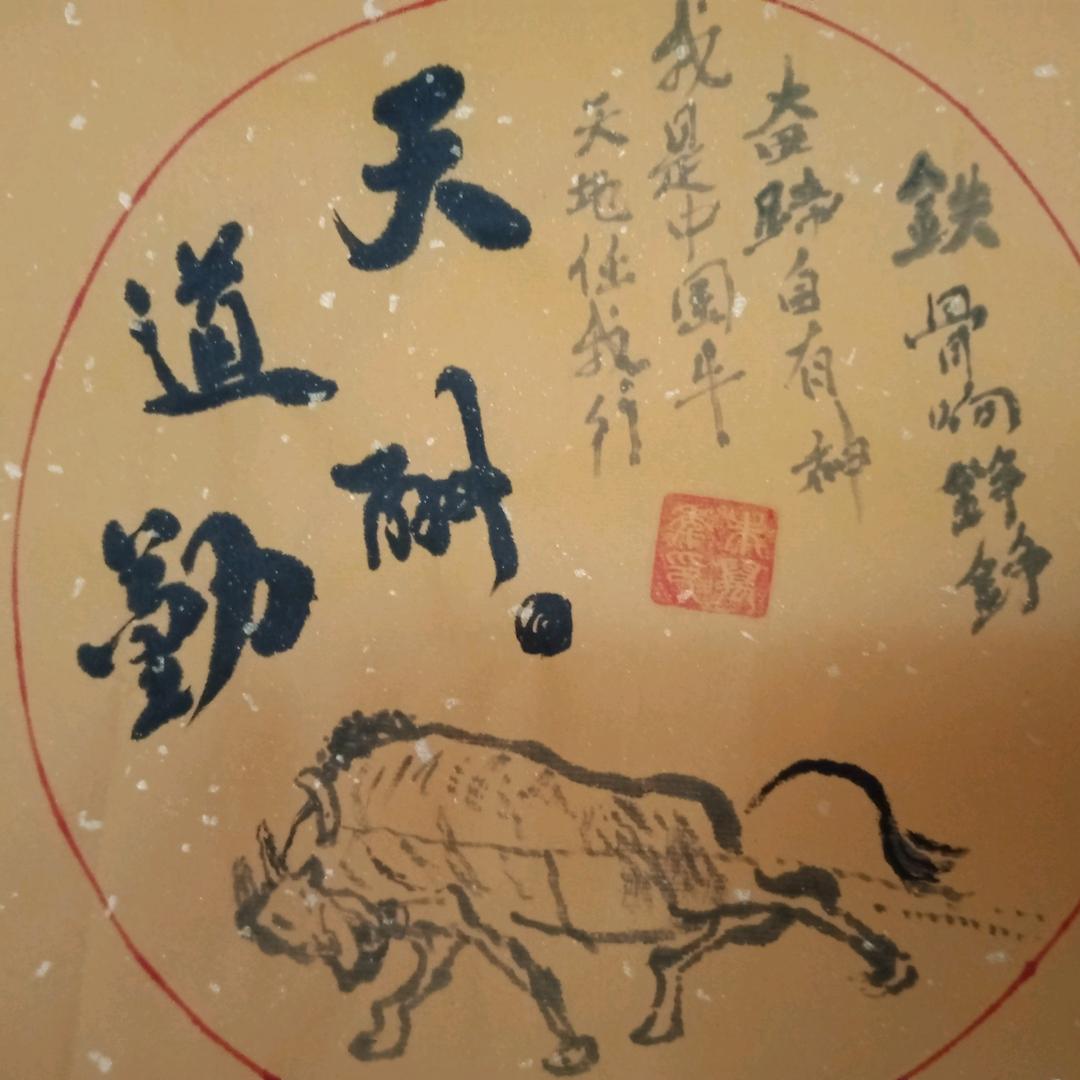 鉄骨响錚錚
奋蹄自有神
我是中國牛
天地任我行
天酬
道勤